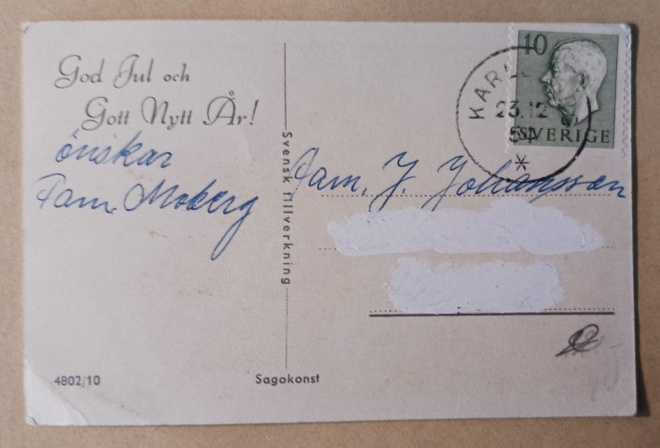 God Jul och
Gott Nytt År!
önskar
Fam. Moberg
Svensk Tillverkning
10
SVERIGE
23.12
Fam. J. Johansson
4802/10
Sagokonst